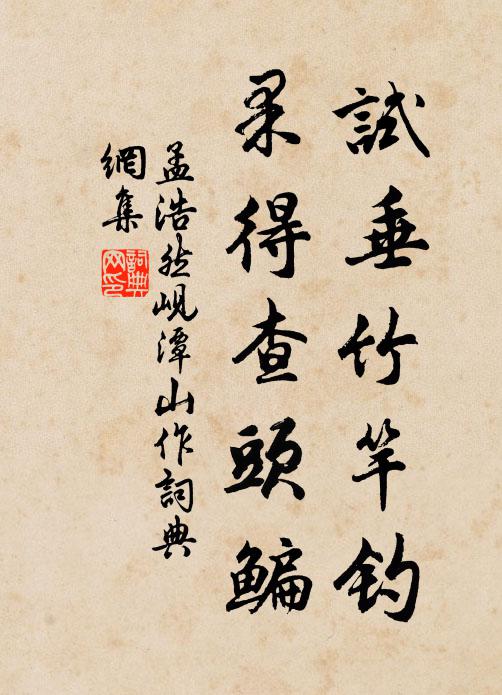 試垂竹竿釣
果得查頭鯿
孟浩然峴潭山作詞典
網集
詞典
网印